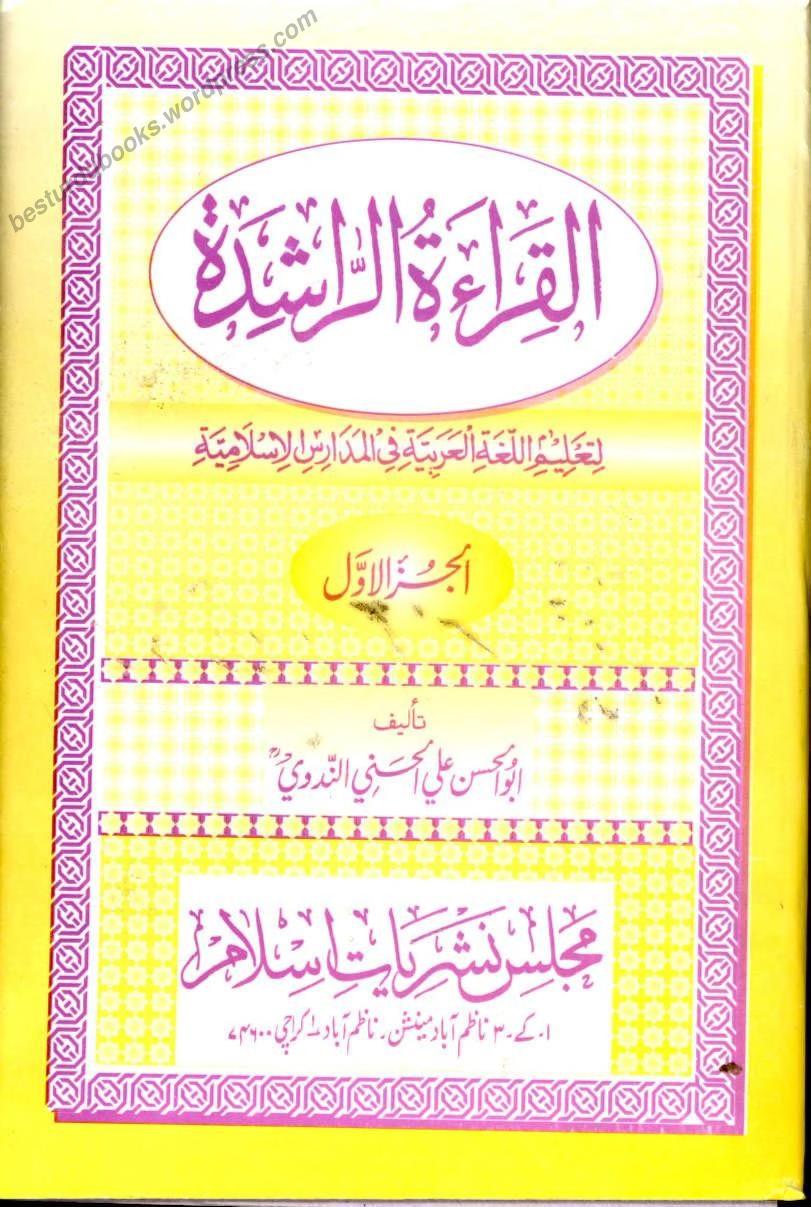 besturdubooks.wordpress.com
القِرَاءَةُ الرَّاشِدَة
لِتَعْلِيْمِ اللّغَةِ العَرَبِيَّةِ فِى المَدَارِسِ الاِسْلَامِيَّةِ
الجُزءُ الاَوَّل
تأليف
ابُو الحسن علي الحسني النّدوي رح
مَجلِس نَشرِيَاتِ اِسْلَام
۱.کے۔۳ ناظم آباد مینشن۔ ناظم آباد ۱ کراچی ۷۴۶۰۰